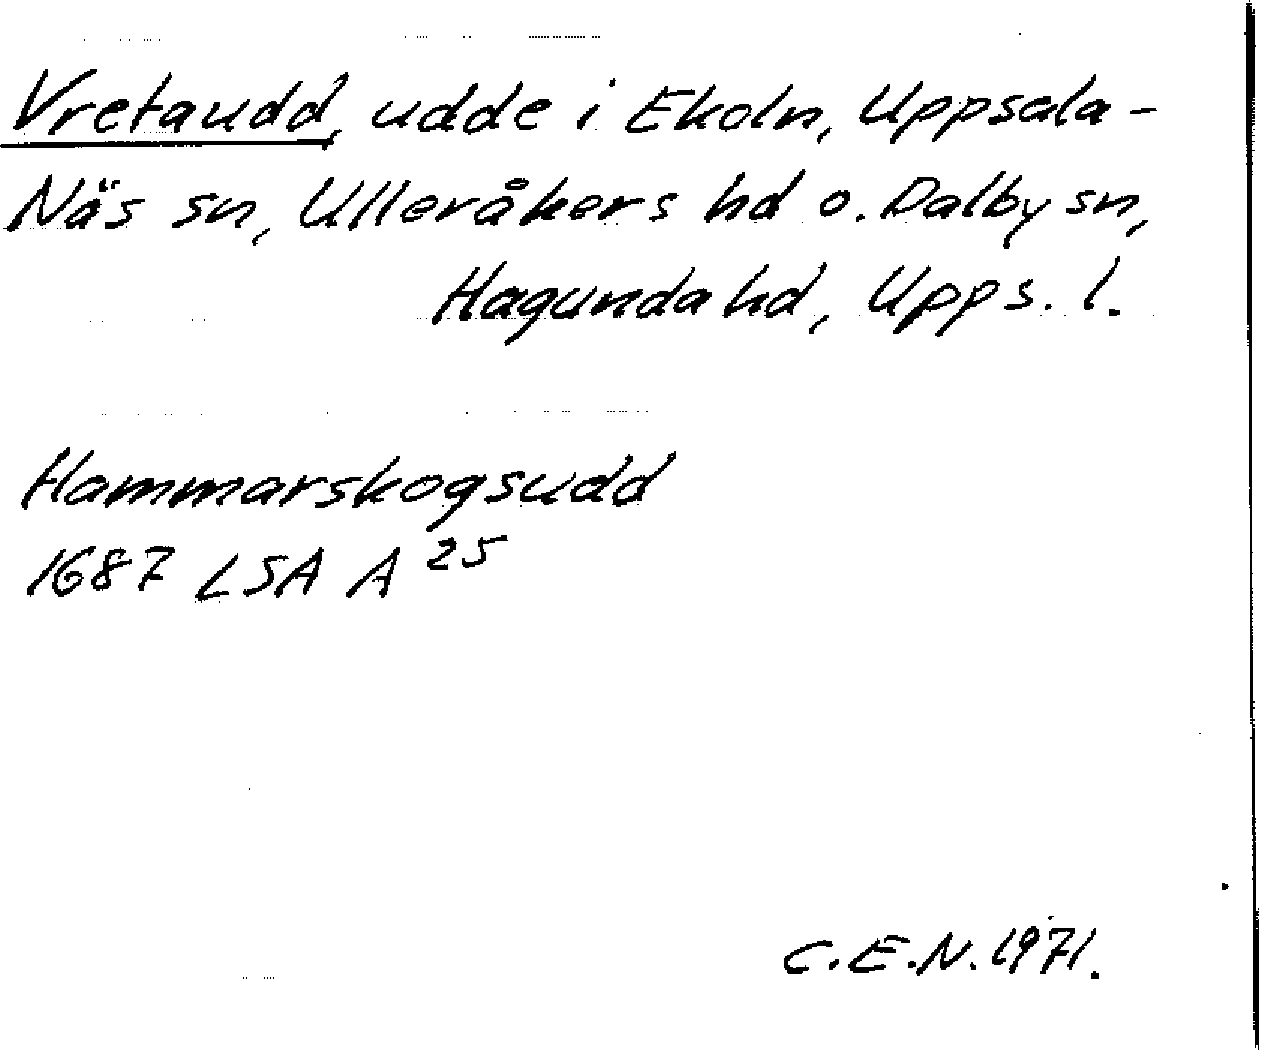 Vretaudd, udde i Ekoln, Uppsala-
Näs sn, Ulleråkers hd o. Dalby sn,
Hagunda hd, Upps. l.
Hammarskogsudd
1687 LSA A 25
C.E.N. 1971.